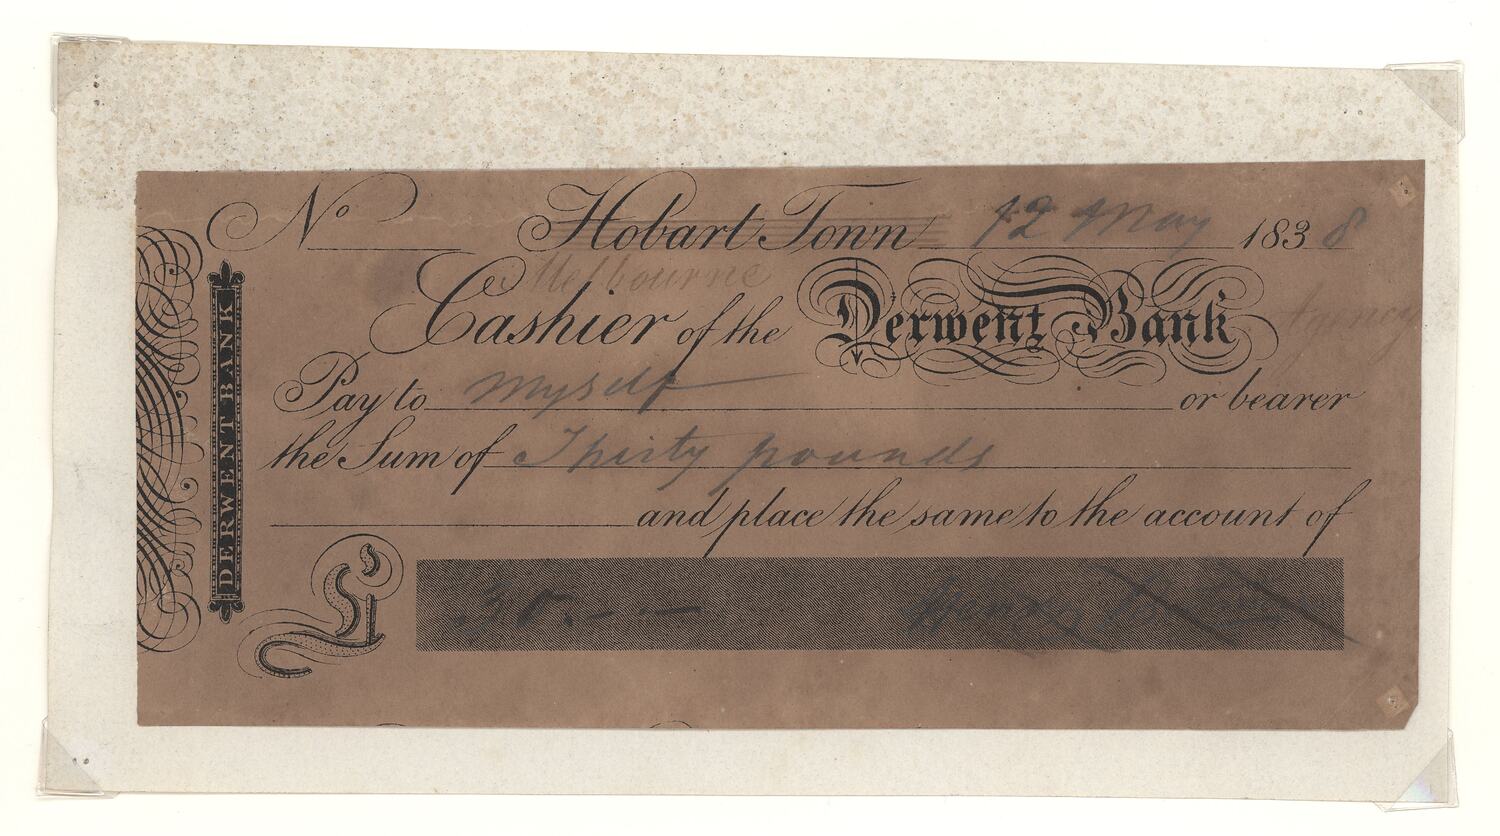 No Hobart Town 12 May 1838
Melbourne
Cashier of the Derwent Bank Agency
Pay to myself or bearer
the Sum of Thirty pounds
and place the same to the account of
£ 30.--
DERWENT BANK